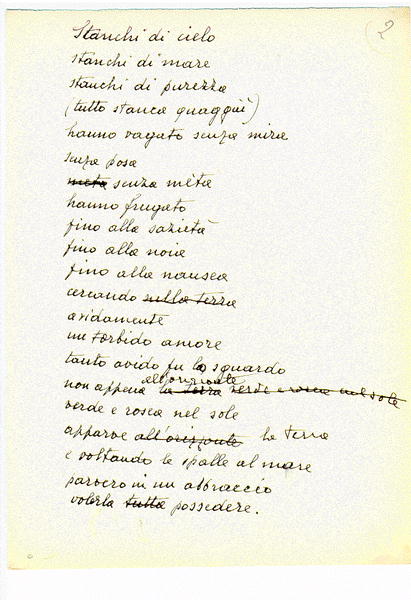 (2
Stanchi di cielo
stanchi di mare
stanchi di purezza
(tutto stanca quaggiù)
hanno vagato senza mira
senza posa
meta senza mèta
hanno frugato
fino alla sazietà
fino alla noia
fino alla nausea
cercando sulla terra
avidamente
un torbido amore
tanto avido fu lo sguardo
all'orizzonte
non appena la terra verde e rosea nel sole
verde e rosea nel sole
apparve all'orizzonte la terra
e voltando le spalle al mare
parvero in un abbraccio
volerla tutta possedere.